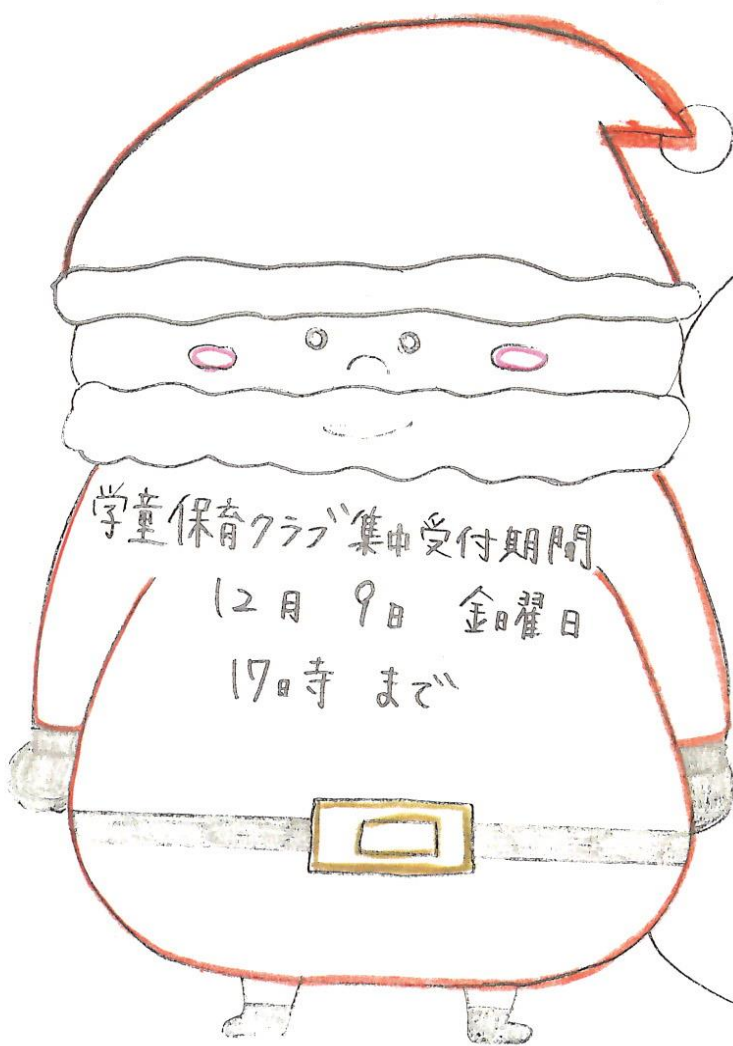 学童保育クラブ集中受付期間
12月 9日 金曜日
17時 まで